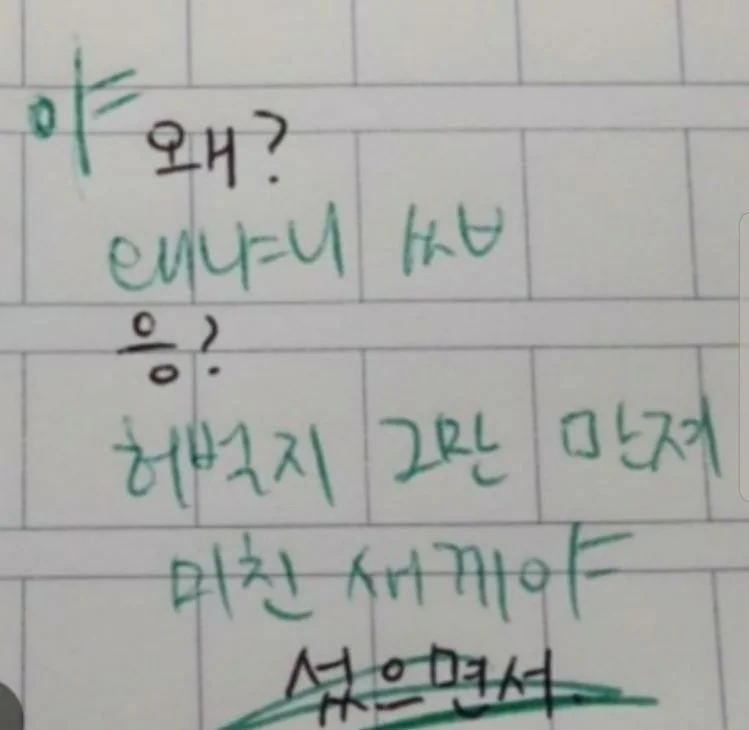 야
왜?
왜냐니 ㅆㅂ
응?
허벅지 그만 만져
미친 새끼야
섰으면서.